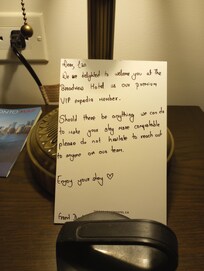 Dear, Liz
We are delighted to welcome you at the
Broadway Hotel as our premium
VIP expedia member.
Should there be anything we can do
to make your stay more comfortable
please do not hesitate to reach out
to anyone on our team.
Enjoy your stay ♡
Front